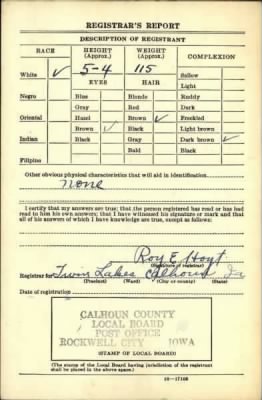 REGISTRAR'S REPORT
DESCRIPTION OF REGISTRANT
RACE HEIGHT (Approx.) WEIGHT (Approx.) COMPLEXION
White ✓ 5-4 115 Sallow
EYES HAIR Light
Negro Blue Blonde Ruddy
Gray Red Dark
Oriental Hazel Brown ✓ Freckled
Brown ✓ Black Light brown
Indian Black Gray Dark brown ✓
Bald Black
Filipino
Other obvious physical characteristics that will aid in identification
None
I certify that my answers are true; that the person registered has read or has had
read to him his own answers; that I have witnessed his signature or mark and that
all of his answers of which I have knowledge are true, except as follows:
Roy E Hoyt
(Signature of registrar)
Registrar for Twin Lakes Calhoun Ia
(Precinct) (Ward) (City or county) (State)
Date of registration
CALHOUN COUNTY
LOCAL BOARD
POST OFFICE
ROCKWELL CITY IOWA
(STAMP OF LOCAL BOARD)
(The stamp of the Local Board having jurisdiction of the registrant
shall be placed in the above space.)
16-17105